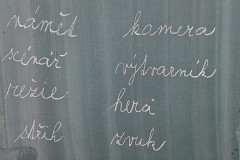 námět
scénář
režie
střih
kamera
výtvarník
herci
zvuk